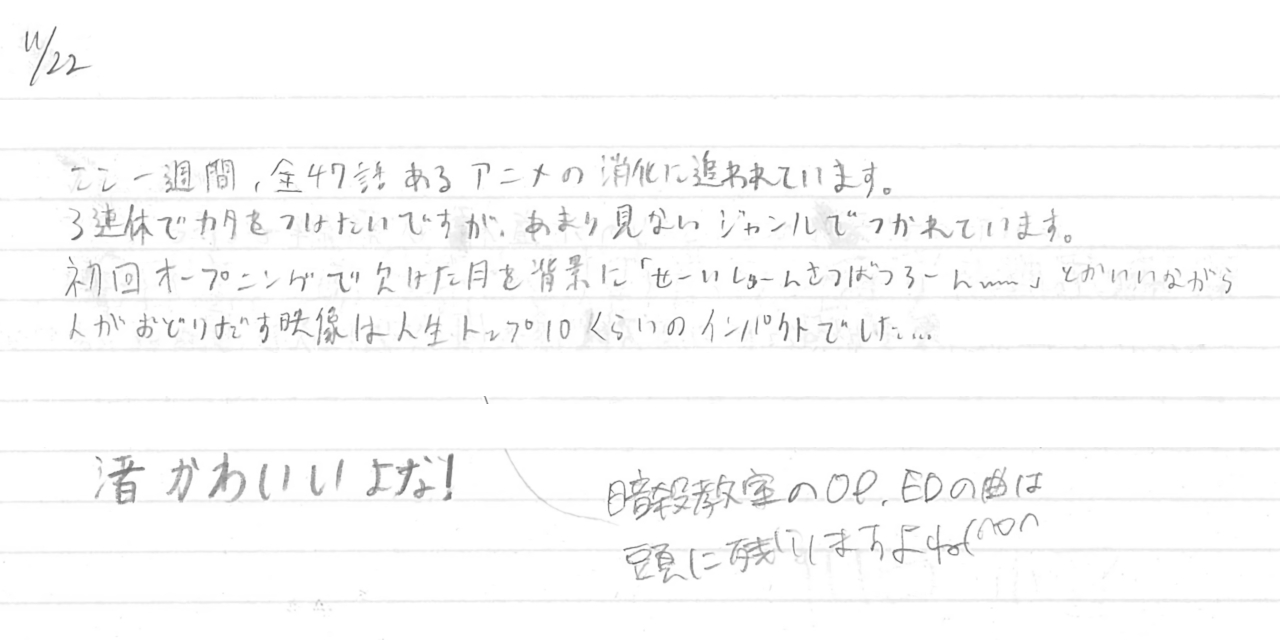 11/22
ここ一週間、全47話あるアニメの消化に追われています。
3連休でカタをつけたいですが、あまり見ないジャンルでつかれています。
初回オープニングで欠けた月を背景に「せーいしゅーんさつばつろーん〰」とかいいながら
人がおどりだす映像は人生トップ10くらいのインパクトでした…
渚かわいいよな!
暗殺教室のOP、EDの曲は
頭に残りますよね(^o^